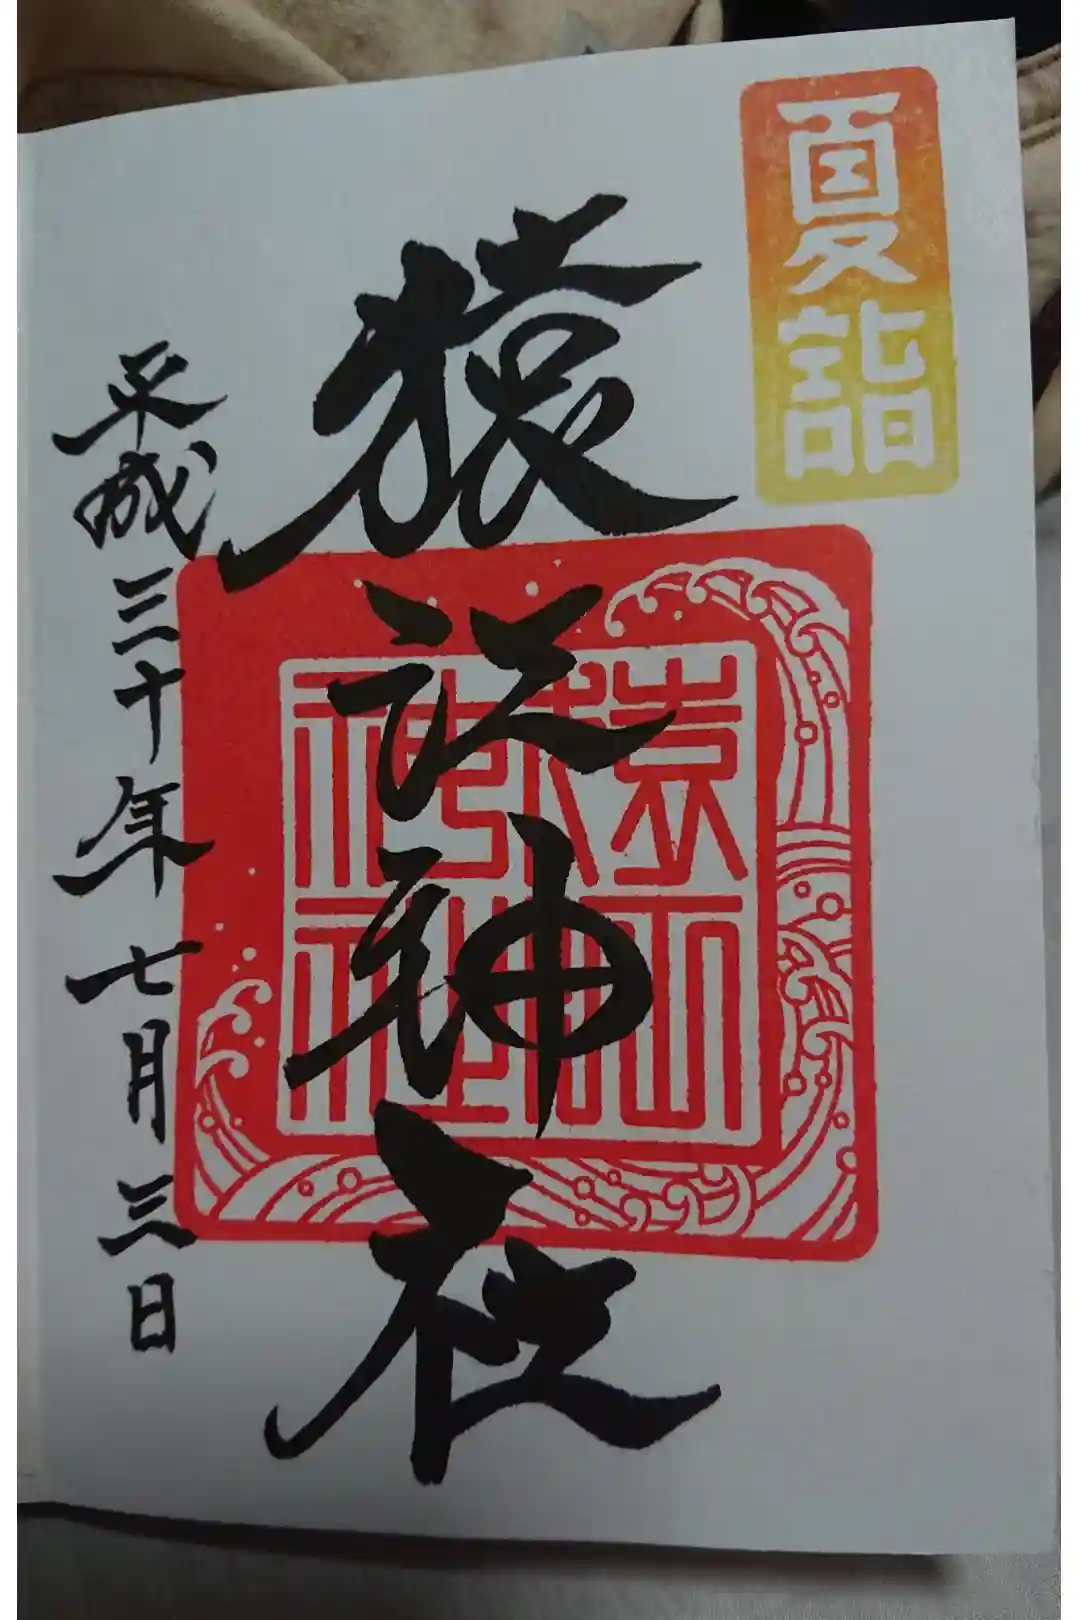 夏詣
猿江神社
猿江
神社
平成三十年七月三日